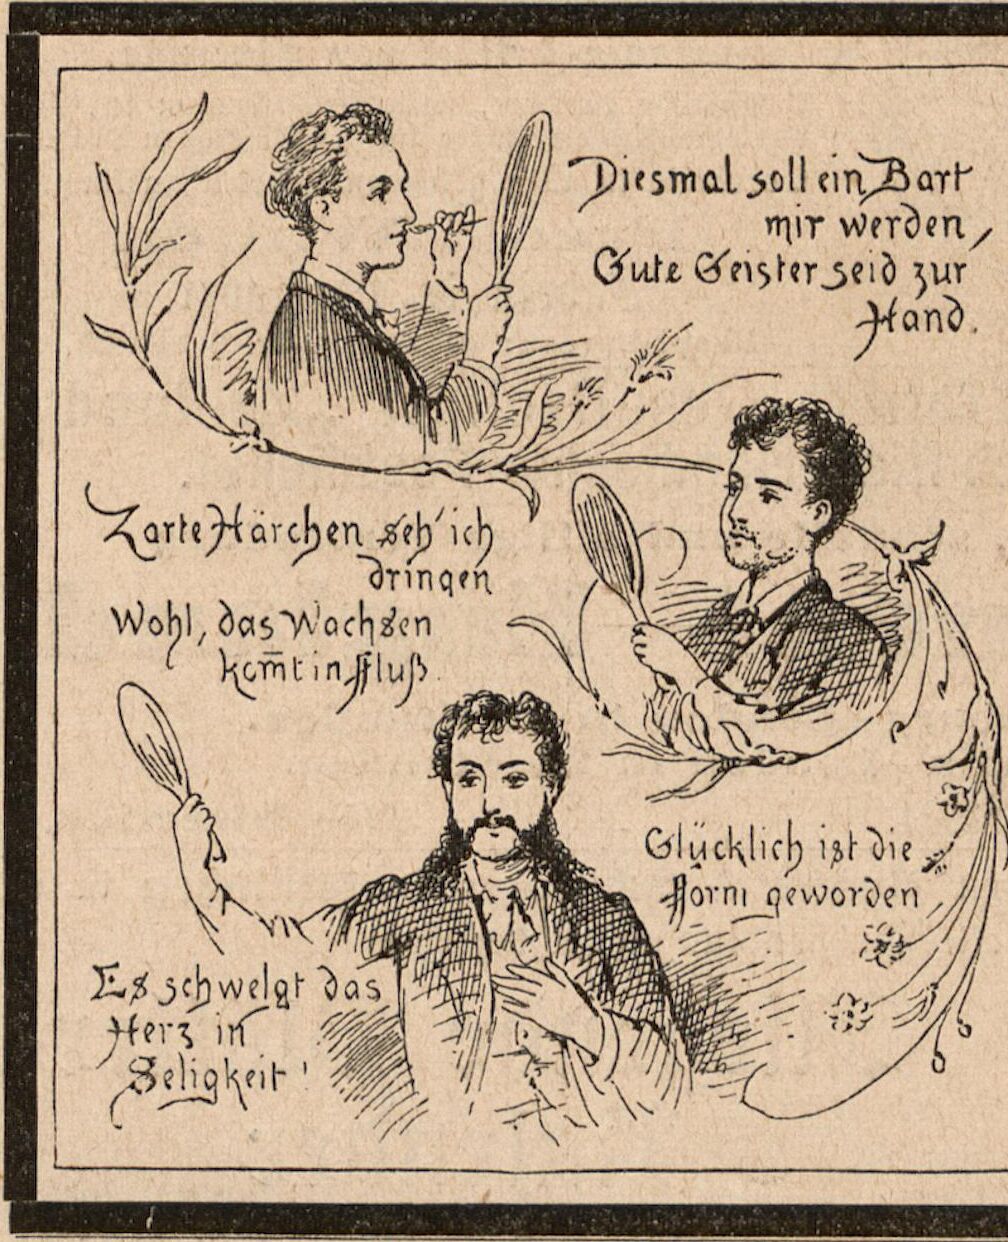 Diesmal soll ein Bart
mir werden,
Gute Geister seid zur
Hand.
Zarte Härchen seh' ich
dringen
Wohl, das Wachsen
kom̅t in Fluß.
Glücklich ist die
Form geworden
Es schwelgt das
Herz in
Seligkeit!